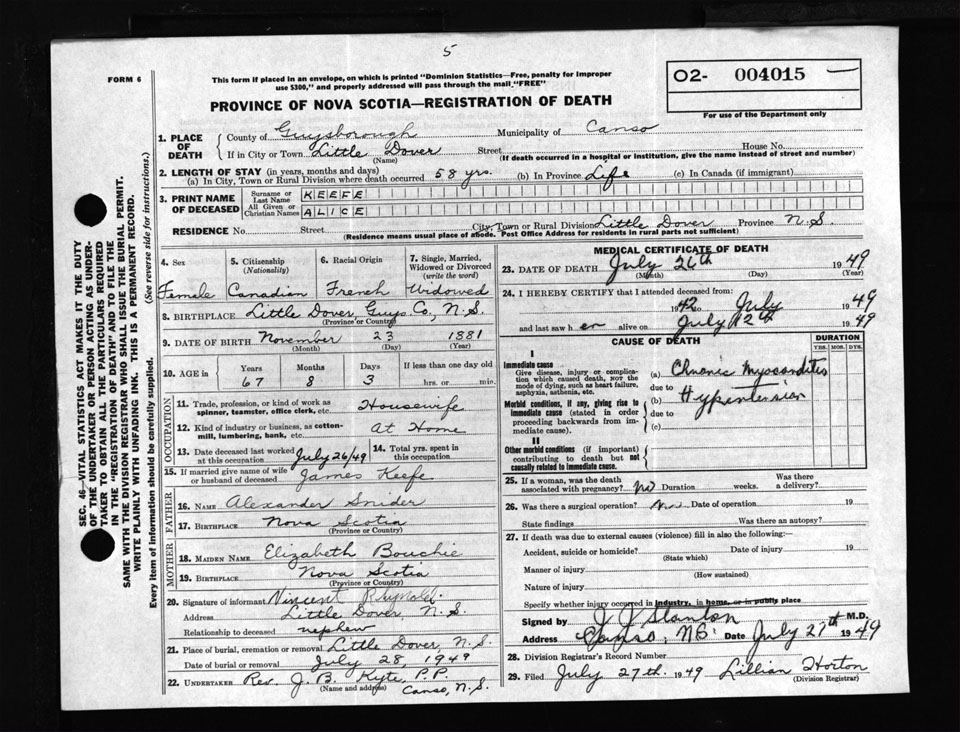 5
FORM 6
This form if placed in an envelope, on which is printed "Dominion Statistics—Free, penalty for improper
use $300," and properly addressed will pass through the mail "FREE"
O2- 004015
For use of the Department only
PROVINCE OF NOVA SCOTIA—REGISTRATION OF DEATH
1. PLACE OF DEATH
County of Guysborough Municipality of Canso
If in City or Town Little Dover Street House No.
(Name) (If death occurred in a hospital or institution, give the name instead of street and number)
2. LENGTH OF STAY (in years, months and days)
(a) In City, Town or Rural Division where death occurred 58 yrs. (b) In Province Life (c) In Canada (if immigrant)
3. PRINT NAME OF DECEASED
Surname or Last Name KEEFE
All Given or Christian Names ALICE
RESIDENCE No. Street City, Town or Rural Division Little Dover Province N.S.
(Residence means usual place of abode. Post Office Address for residents in rural parts not sufficient)
4. Sex
Female
5. Citizenship
(Nationality)
Canadian
6. Racial Origin
French
7. Single, Married,
Widowed or Divorced
(write the word)
Widowed
8. BIRTHPLACE Little Dover, Guys. Co., N.S.
(Province or Country)
9. DATE OF BIRTH November 23 1881
(Month) (Day) (Year)
10. AGE in
Years Months Days If less than one day old
67 8 3 hrs. or min.
OCCUPATION
11. Trade, profession, or kind of work as
spinner, teamster, office clerk, etc. Housewife
12. Kind of industry or business, as cotton-
mill, lumbering, bank, etc. At Home
13. Date deceased last worked
at this occupation July 26/49
14. Total yrs. spent in
this occupation
15. If married give name of wife
or husband of deceased James Keefe
FATHER
16. Name Alexander Snider
17. BIRTHPLACE Nova Scotia
(Province or Country)
MOTHER
18. MAIDEN NAME Elizabeth Bouchie
19. BIRTHPLACE Nova Scotia
(Province or Country)
20. Signature of informant Vincent
Address Little Dover, N.S.
Relationship to deceased nephew
21. Place of burial, cremation or removal Little Dover, N.S.
Date of burial or removal July 28, 1949
22. UNDERTAKER Rev. J. B. Kyte, P.P.
(Name and address) Canso, N.S.
MEDICAL CERTIFICATE OF DEATH
23. DATE OF DEATH July 26th 1949
(Month) (Day) (Year)
24. I HEREBY CERTIFY that I attended deceased from:
1942 July 1949
and last saw her alive on July 12th 1949
CAUSE OF DEATH
DURATION
YRS. MOS. DYS.
I
Immediate cause
Give disease, injury or complica-
tion which caused death, NOT the
mode of dying, such as heart failure,
asphyxia, asthenia, etc.
(a) Chronic Myocarditis
due to
Morbid conditions, if any, giving rise to
immediate cause (stated in order
proceeding backwards from im-
mediate cause).
(b) Hypertension
due to
(c)
II
Other morbid conditions (if important)
contributing to death but not
causally related to immediate cause.
25. If a woman, was the death
associated with pregnancy? no Duration weeks. Was there
a delivery?
26. Was there a surgical operation? no Date of operation 19
State findings Was there an autopsy?
27. If death was due to external causes (violence) fill in also the following:—
Accident, suicide or homicide? Date of injury 19
(State which)
Manner of injury
(How sustained)
Nature of injury
Specify whether injury occurred in industry, in home, or in public place
Signed by J J Stanton M.D.
Address Canso, NS. Date July 27th 1949
28. Division Registrar's Record Number
29. Filed July 27th. 1949 Lillian Horton
(Division Registrar)
SEC. 46—VITAL STATISTICS ACT MAKES IT THE DUTY
OF THE UNDERTAKER OR PERSON ACTING AS UNDER-
TAKER TO OBTAIN ALL THE PARTICULARS REQUIRED
IN THE "REGISTRATION OF DEATH" AND TO FILE THE
SAME WITH THE DIVISION REGISTRAR WHO SHALL ISSUE THE BURIAL PERMIT.
WRITE PLAINLY WITH UNFADING INK. THIS IS A PERMANENT RECORD.
Every item of information should be carefully supplied. (See reverse side for instructions.)